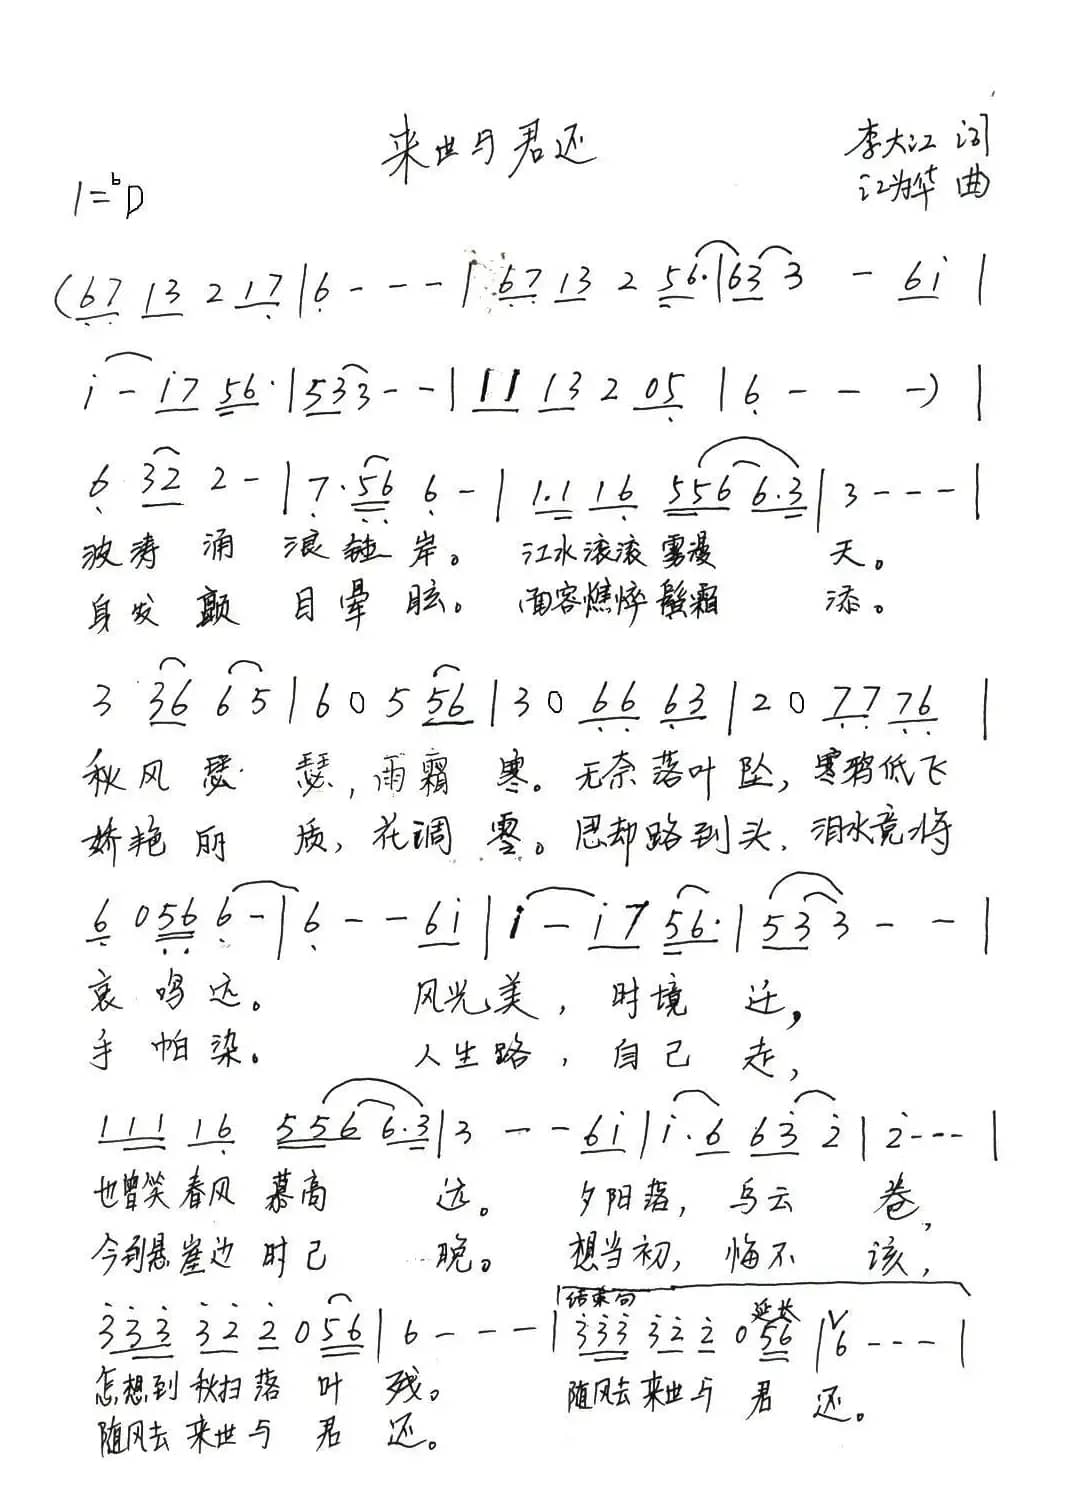 来世与君还
李大江 词
江为华 曲
1=bD
(67 13 2 17 | 6 - - - | 67 13 2 56· | 63 3 - 6i |
i - i7 56· | 533 - - | 11 13 2 05 | 6 - - -) |
6 32 2 - | 7·56 6 - | 1·1 16 556 6·3 | 3 - - - |
波涛涌浪 岸。江水滚滚雾漫天。
身发颤目晕眩。面容憔悴鬓霜添。
3 36 65 | 60 5 56 | 30 66 63 | 20 77 76 |
秋风瑟瑟,雨霜寒。无奈落叶坠,寒鸦低飞
娇艳丽质,花调零。思却路到头,泪水竟将
6 0 56 6 - | 6 - - 6i | i - i7 56· | 533 - - |
哀鸣远。风光美,时境迁,
手帕染。人生路,自己走,
111 16 556 6·3 | 3 - - 6i | i·6 63 2 | 2 - - - |
也曾笑春风慕高远。夕阳落,乌云卷,
今到悬崖边时已晚。想当初,悔不该,
结束句
延长
333 32 2 0 56 | 6 - - - | 333 32 2 0 56 | 6 - - - |
怎想到秋扫落叶残。随风去来世与君还。
随风去来世与君还。